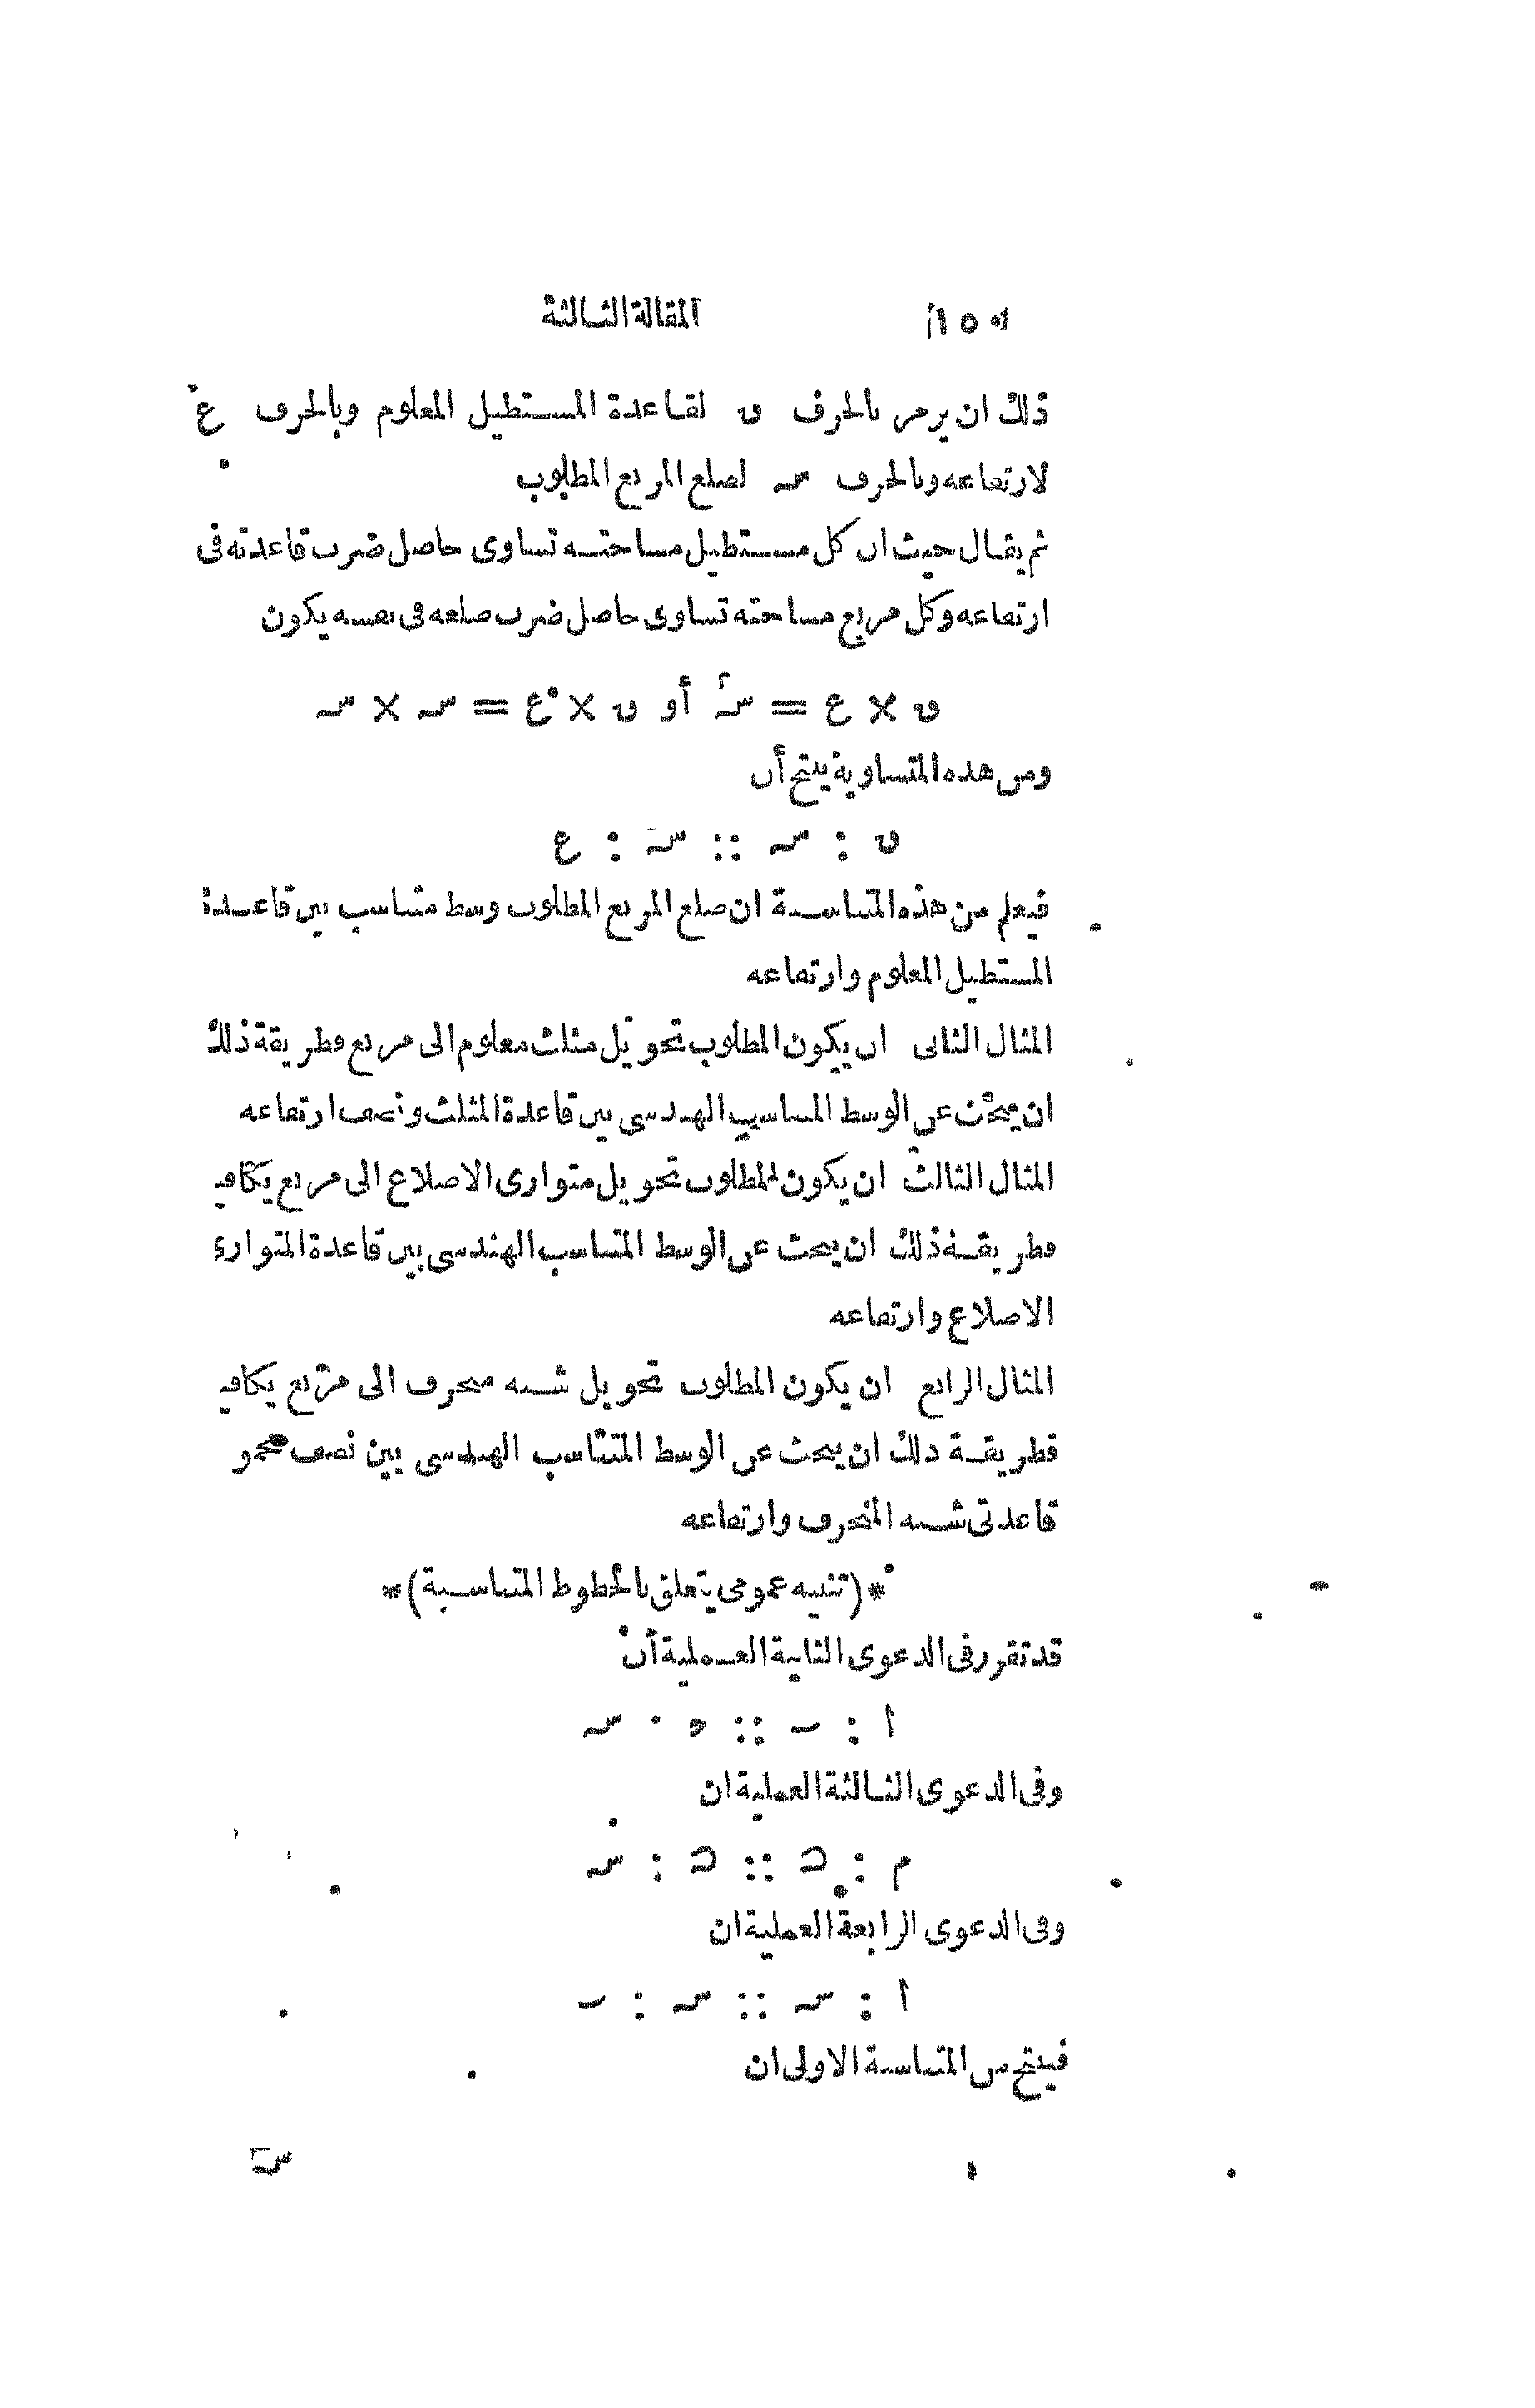 ١٥٠ المقالة الثالثة
ذلك ان يرمز بالحرف ق لقاعدة المستطيل المعلوم وبالحرف ع
لارتفاعه وبالحرف سه لضلع المربع المطلوب
ثم يقال حيث ان كل مستطيل مساحته تساوى حاصل ضرب قاعدته فى
ارتفاعه وكل مربع مساحته تساوى حاصل ضرب ضلعه فى نفسه يكون
ق × ع = سه٢ أو ق × ع = سه × سه
ومن هذه المتساوية ينتج أن
ق : سه :: سه : ع
فيعلم من هذه المتناسبة ان ضلع المربع المطلوب وسط متناسب بين قاعدة
المستطيل المعلوم وارتفاعه
المثال الثانى ان يكون المطلوب تحويل مثلث معلوم الى مربع فطريقة ذلك
ان يبحث عن الوسط المناسب الهندسى بين قاعدة المثلث ونصف ارتفاعه
المثال الثالث ان يكون المطلوب تحويل متوازى الاضلاع الى مربع يكافيه
فطريقة ذلك ان يبحث عن الوسط المتناسب الهندسى بين قاعدة المتوازى
الاضلاع وارتفاعه
المثال الرابع ان يكون المطلوب تحويل شبه منحرف الى مربع يكافيه
فطريقة ذلك ان يبحث عن الوسط المتناسب الهندسى بين نصف مجمو
قاعدتى شبه المنحرف وارتفاعه
*(تنبيه عمومى يتعلق بالخطوط المتناسبة)*
قد تقرر فى الدعوى الثانية العملية أن
ا : ب :: ح : سه
وفى الدعوى الثالثة العملية ان
م : د :: د : سه
وفى الدعوى الرابعة العملية ان
ا : سه :: سه : ب
فينتج من المتناسبة الاولى ان
سه